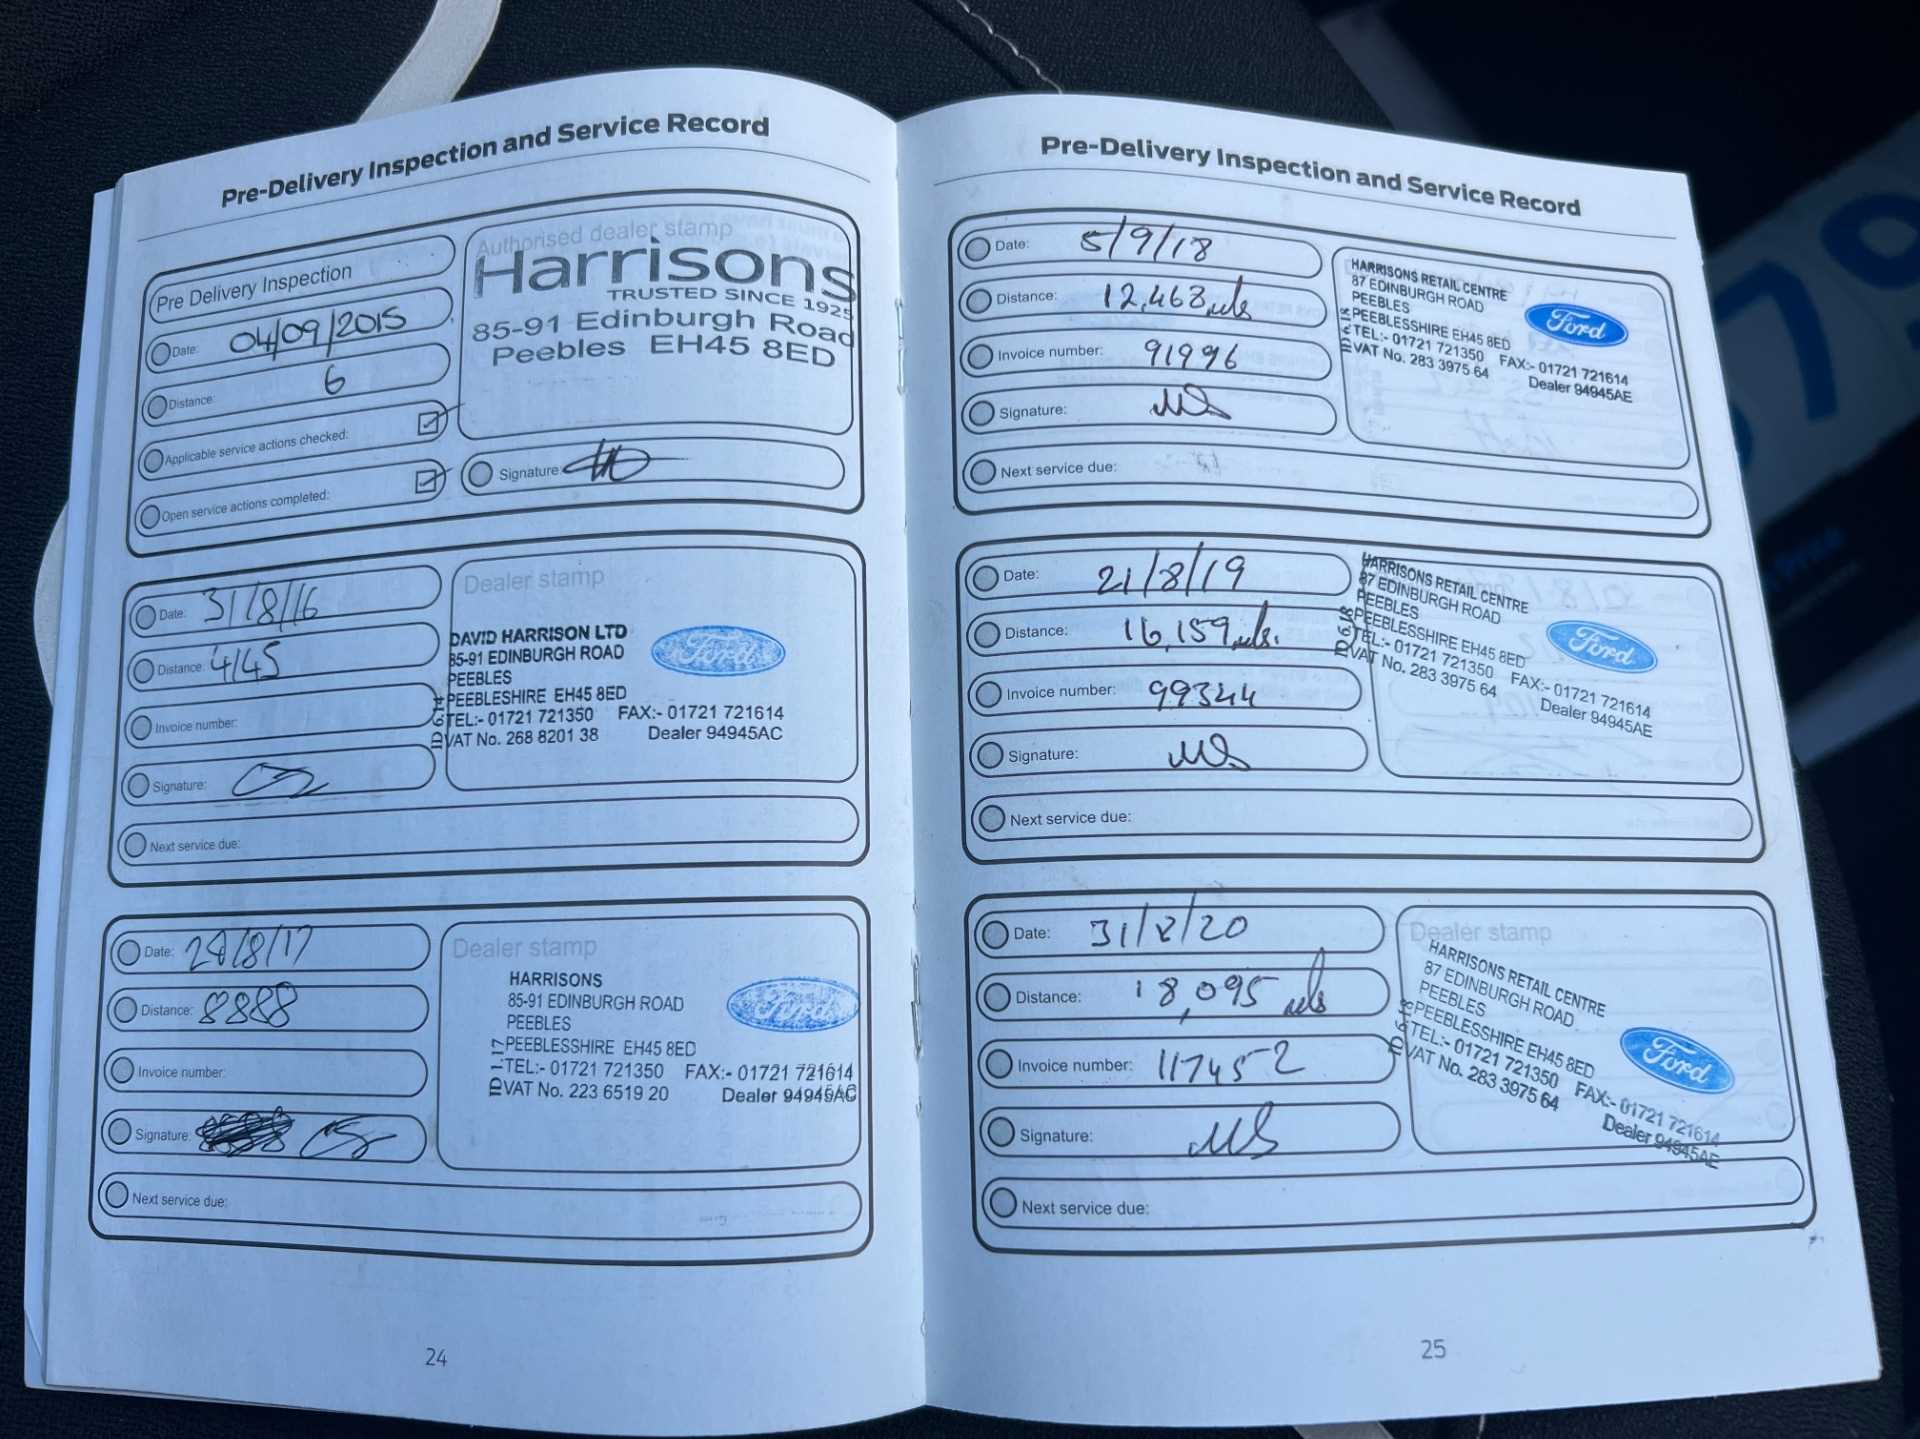 Pre-Delivery Inspection and Service Record
Pre Delivery Inspection
Date: 04/09/2015
Distance: 6
Applicable service actions checked:
Open service actions completed:
Authorised dealer stamp
Harrisons
TRUSTED SINCE 1925
85-91 Edinburgh Road
Peebles EH45 8ED
Signature
Date: 31/8/16
Distance: 4145
Invoice number:
Signature:
Next service due:
Dealer stamp
DAVID HARRISON LTD
85-91 EDINBURGH ROAD
PEEBLES
PEEBLESHIRE EH45 8ED
TEL:- 01721 721350 FAX:- 01721 721614
VAT No. 268 8201 38 Dealer 94945AC
Ford
Date: /8/17
Distance: 8888
Invoice number:
Signature:
Next service due:
Dealer stamp
HARRISONS
85-91 EDINBURGH ROAD
PEEBLES
PEEBLESSHIRE EH45 8ED
TEL:- 01721 721350 FAX:- 01721 721614
VAT No. 223 6519 20 Dealer 94945AC
Ford
24
Pre-Delivery Inspection and Service Record
Date: 5/9/18
Distance: 12,463 mls
Invoice number: 91996
Signature:
Next service due:
HARRISONS RETAIL CENTRE
87 EDINBURGH ROAD
PEEBLES
PEEBLESSHIRE EH45 8ED
TEL:- 01721 721350 FAX:- 01721 721614
VAT No. 283 3975 64 Dealer 94945AE
Ford
Date: 21/8/19
Distance: 16,159 mls.
Invoice number: 99344
Signature:
Next service due:
HARRISONS RETAIL CENTRE
87 EDINBURGH ROAD
PEEBLES
PEEBLESSHIRE EH45 8ED
TEL:- 01721 721350 FAX:- 01721 721614
VAT No. 283 3975 64 Dealer 94945AE
Ford
Date: 31/8/20
Distance: 18,095 mls
Invoice number: 117452
Signature:
Next service due:
Dealer stamp
HARRISONS RETAIL CENTRE
87 EDINBURGH ROAD
PEEBLES
PEEBLESSHIRE EH45 8ED
TEL:- 01721 721350 FAX:- 01721 721614
VAT No. 283 3975 64 Dealer 94945AE
Ford
25